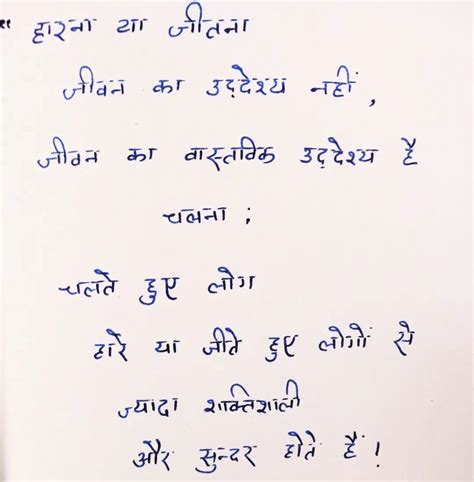 " हारना या जीतना
जीवन का उद्देश्य नहीं,
जीवन का वास्तविक उद्देश्य है
चलना ;
चलते हुए लोग
हारे या जीते हुए लोगों से
ज्यादा शक्तिशाली
और सुन्दर होते हैं !